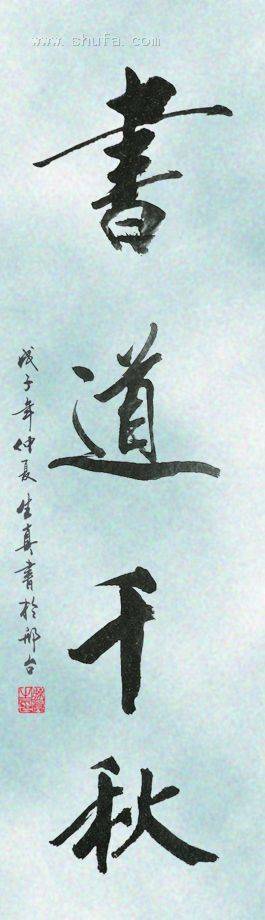 www.shufa.com
書道千秋
戊子年仲夏生真書於邢台